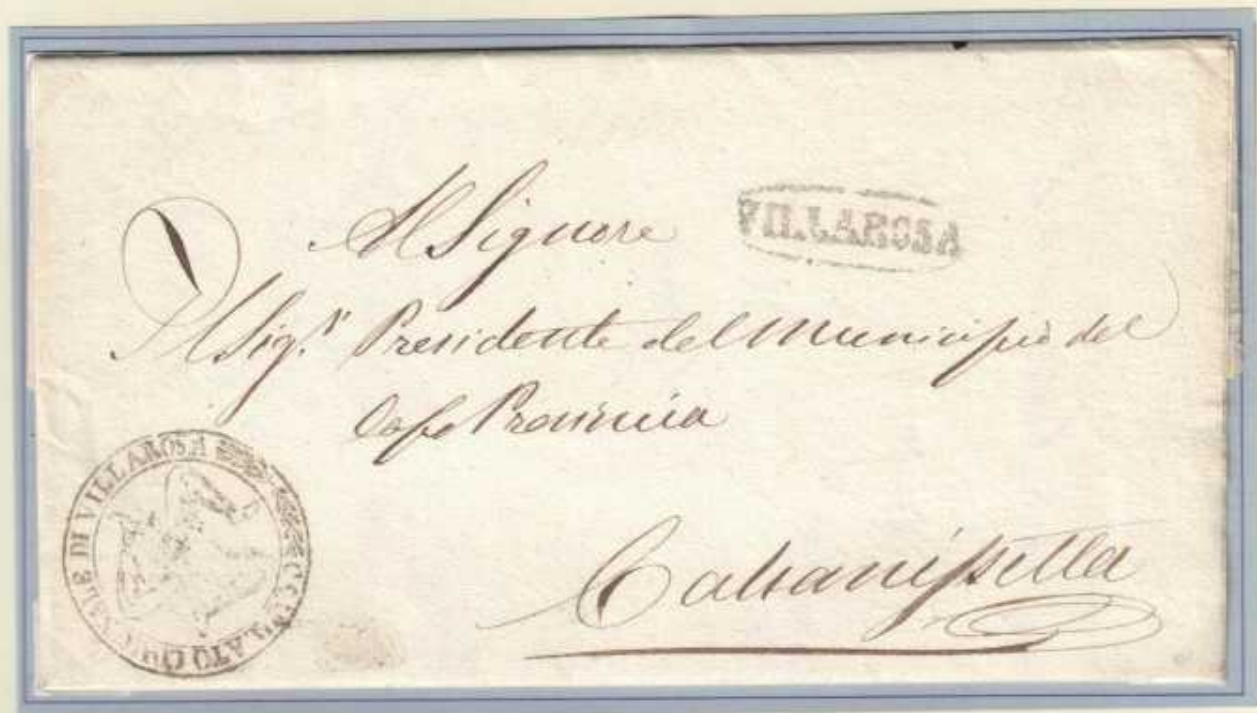 Al Signore
VILLAROSA
Il Sig.r Presidente del Municipio del
Capo Provincia
Caltanissetta
COMITATO COMUNALE DI VILLAROSA